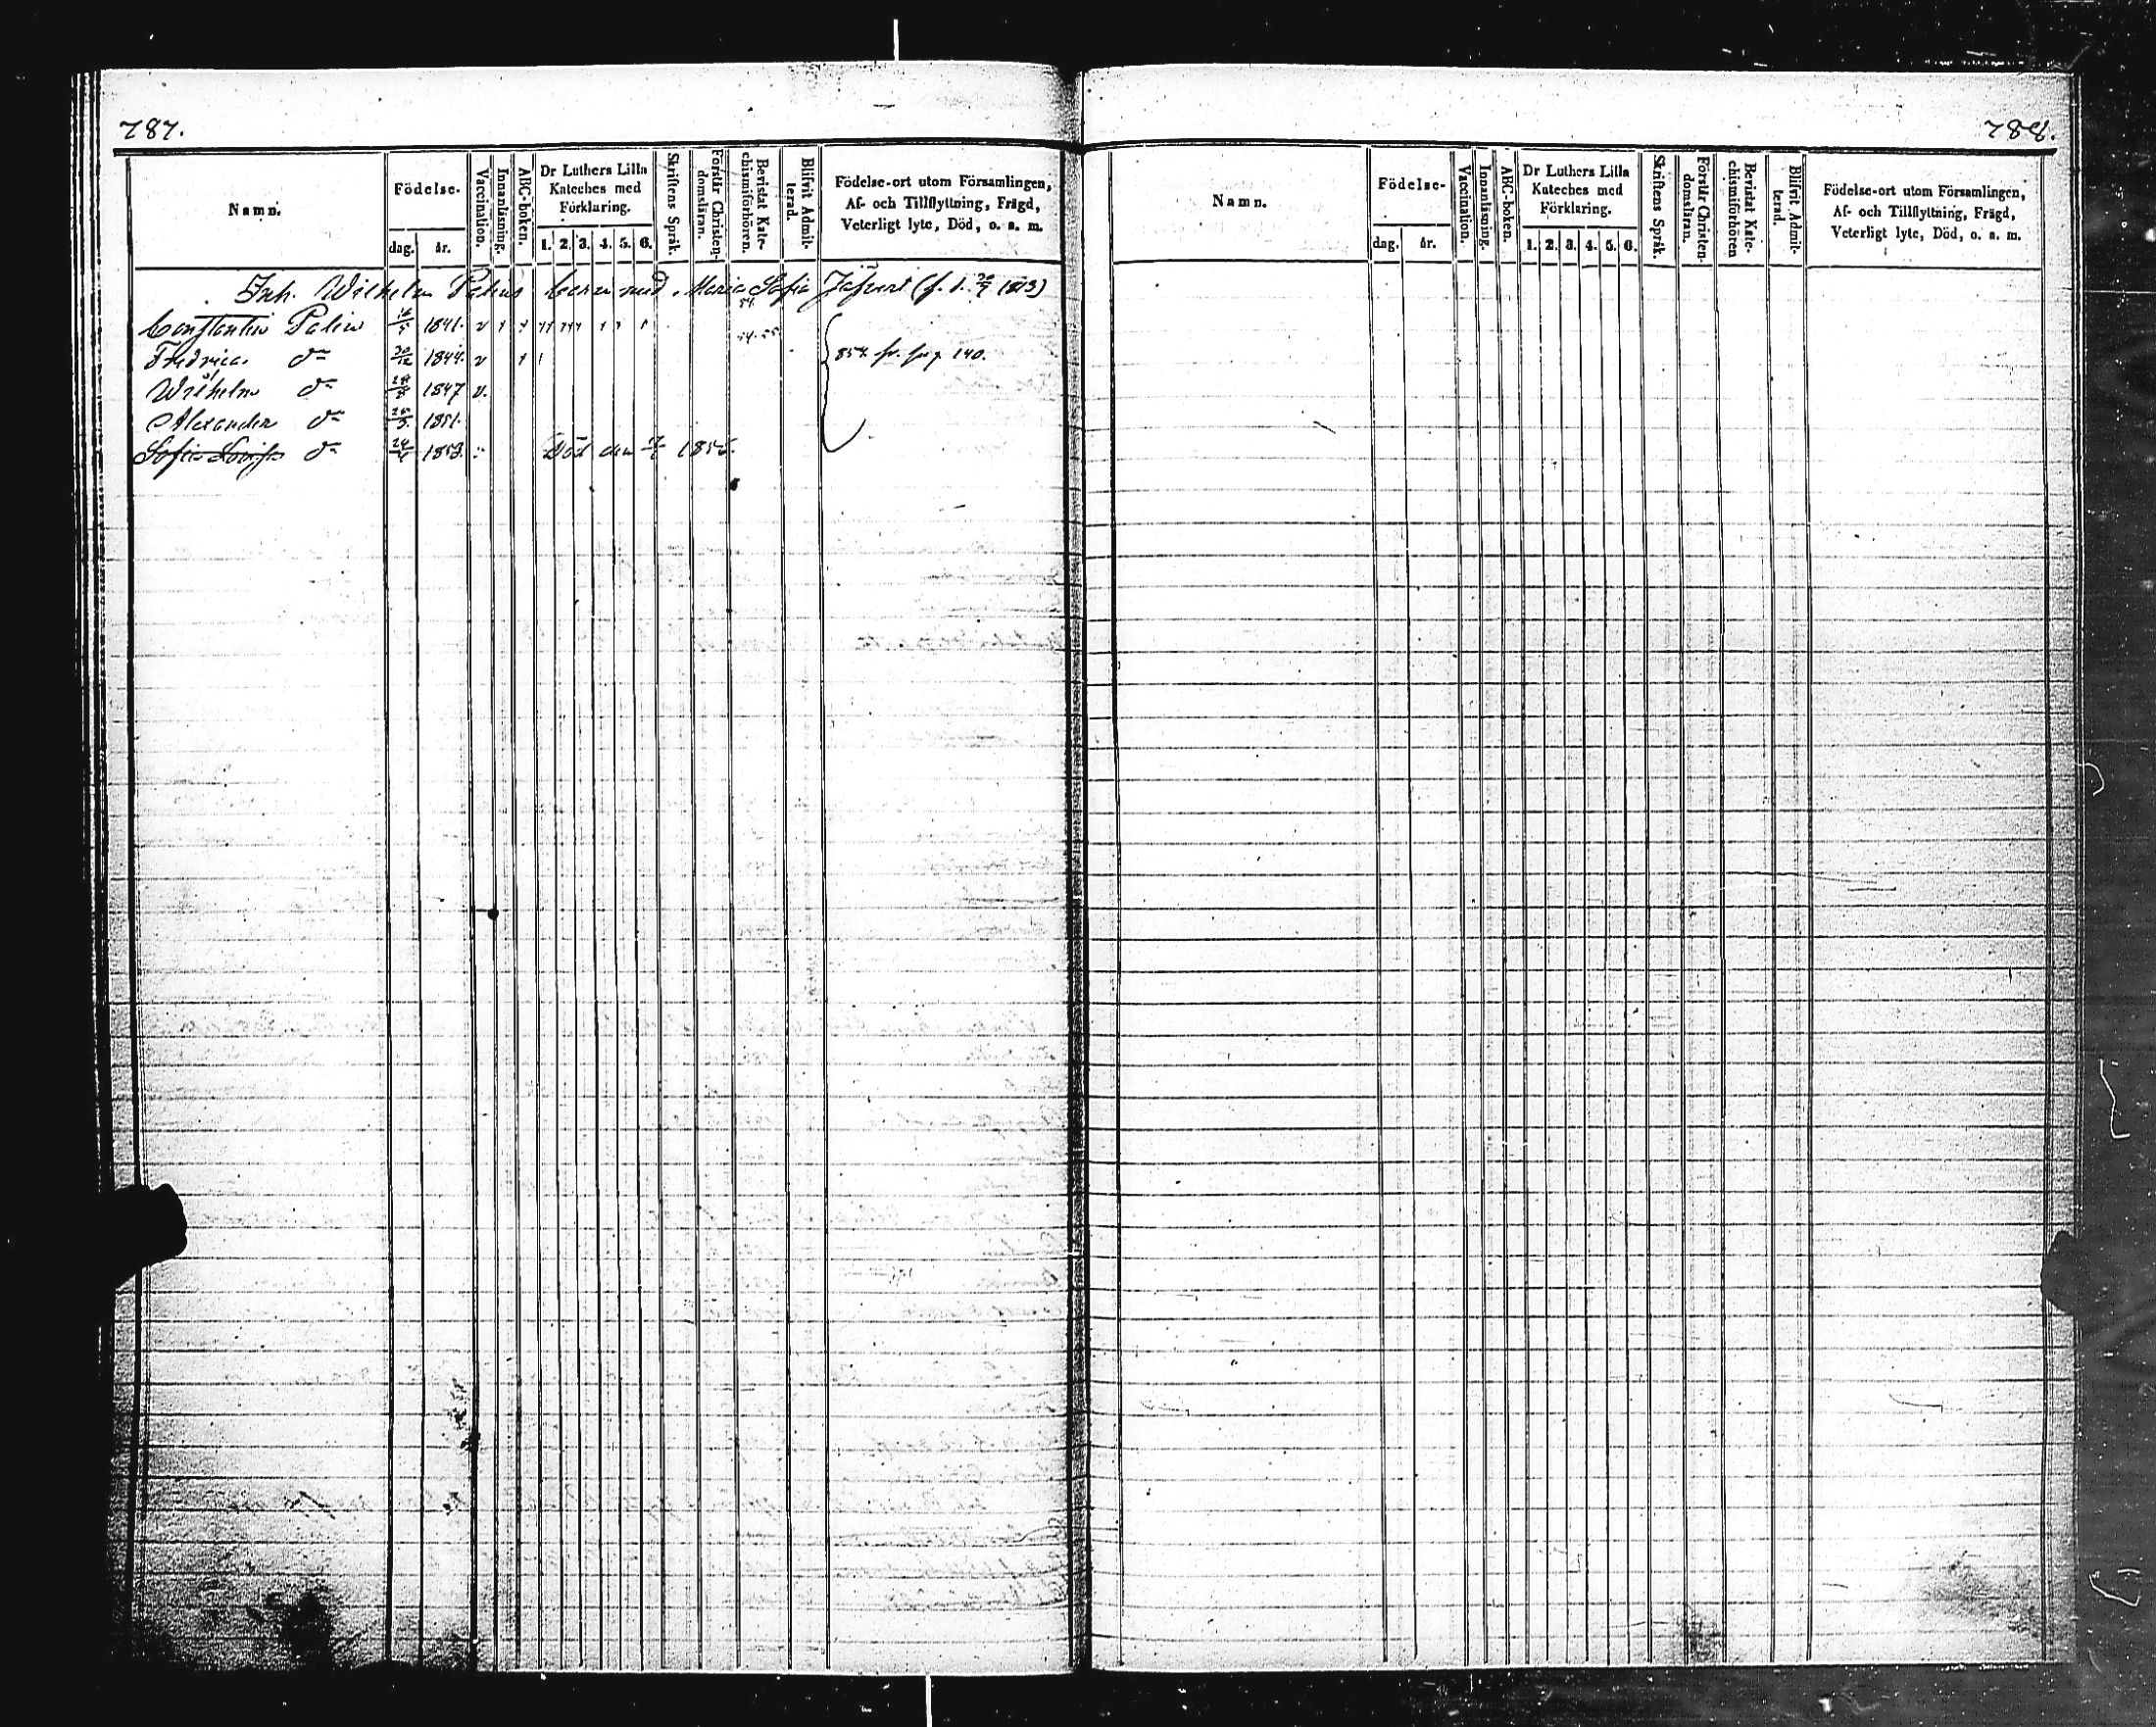 787.
Namn.
Födelse-
dag. år.
Vaccination.
Innanläsning.
ABC-boken.
Dr Luthers Lilla
Kateches med
Förklaring.
1. 2. 3. 4. 5. 6.
Skriftens Språk.
Förstår Christen-
domsläran.
Bevistat Kate-
chismiförhören.
Blifvit Admit-
terad.
Födelse-ort utom Församlingen,
Af- och Tillflyttning, Frägd,
Veterligt lyte, Död, o. s. m.
Inh. Wilhelm Palins barn med Maria Sofia (f. d. 1813)
Constantin Palin 1841. v
54. 55
Fredrica dn 30/12 1844. v
854 fr. pag 140.
Wilhelm dn 1847 v.
Alexander dn 1851.
Sofia Lovisa dn 1853. Död den 1855.
788.
Namn.
Födelse-
dag. år.
Vaccination.
Innanläsning.
ABC-boken.
Dr Luthers Lilla
Kateches med
Förklaring.
1. 2. 3. 4. 5. 6.
Skriftens Språk.
Förstår Christen-
domsläran.
Bevistat Kate-
chismiförhören
Blifvit Admit-
terad.
Födelse-ort utom Församlingen,
Af- och Tillflyttning, Frägd,
Veterligt lyte, Död, o. s. m.